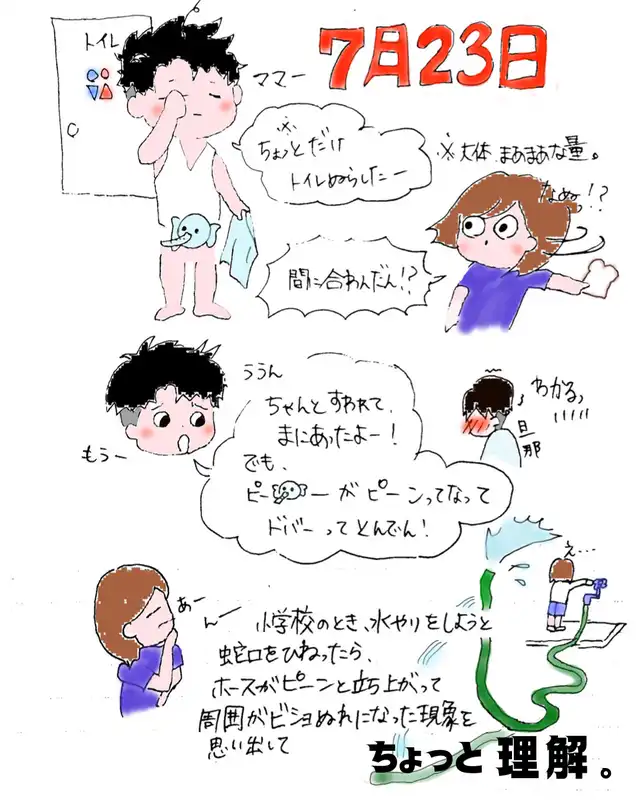 7月23日
トイレ
ママー
※
ちょっとだけ
トイレぬらしたー
※大体、まあまあな量。
なぬっ!?
間に合わんだん!?
ううん
ちゃんとすわれて、
まにあったよー!
でも、
ピーーがピーンってなって
ドバーってとんでん!
もうー
わかる、
旦那
あー
んー
小学校のとき、水やりをしようと
蛇口をひねったら、
ホースがピーンと立ち上がって
周囲がビショぬれになった現象を
思い出して
え…
ちょっと理解。